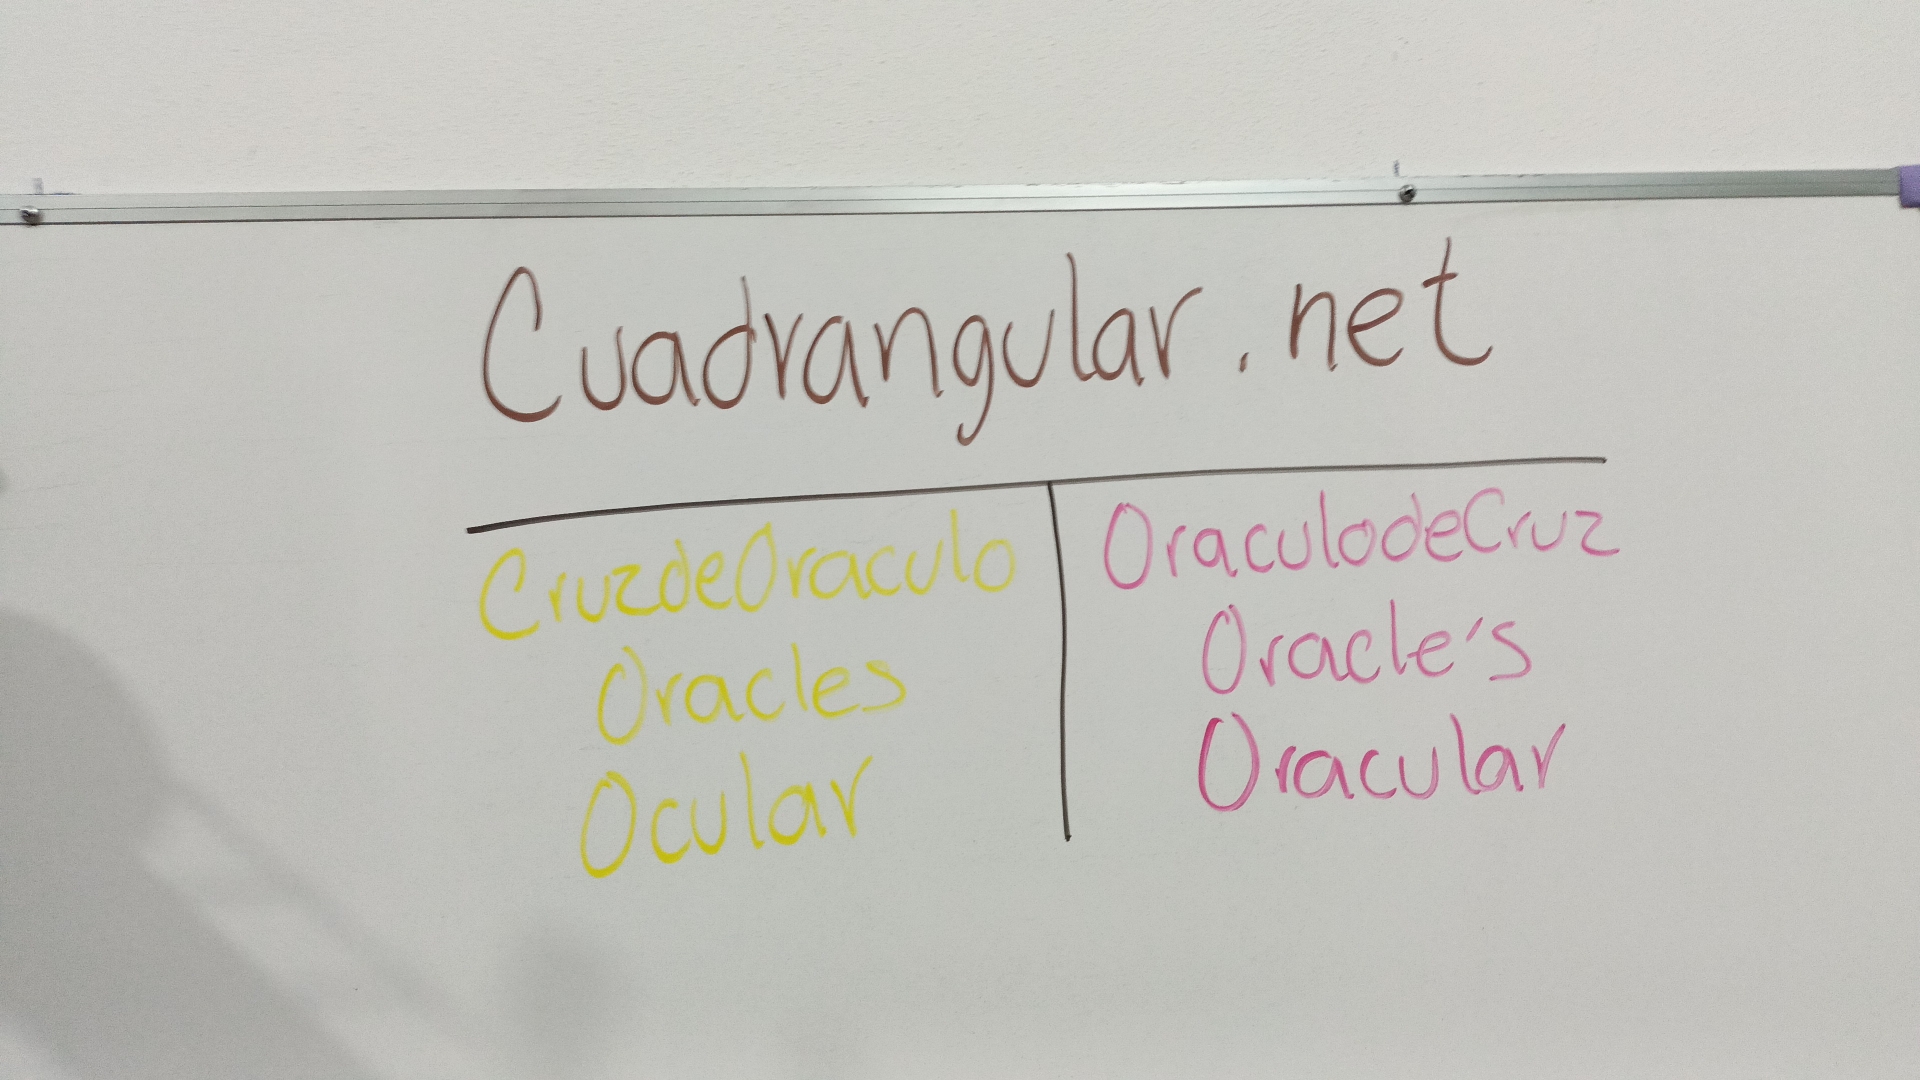 Cuadrangular.net
CruzdeOraculo
Oracles
Ocular
OraculodeCruz
Oracle's
Oracular